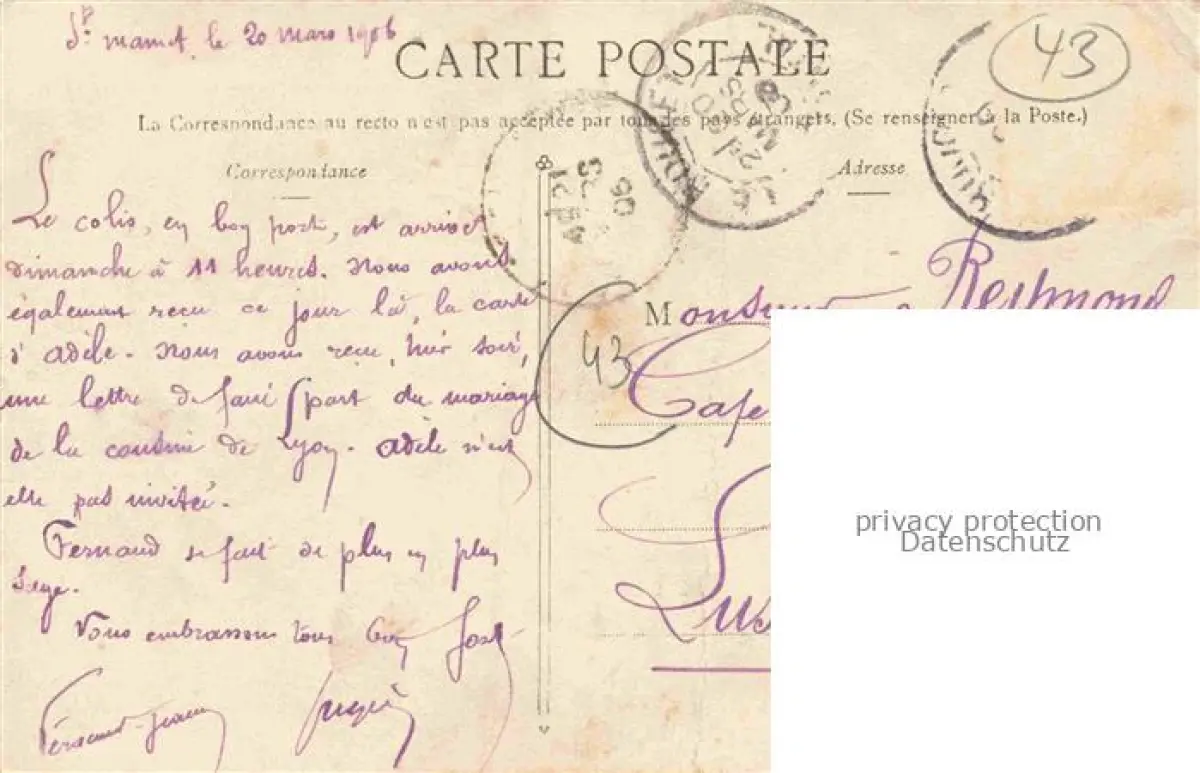 St mamet, le 20 mars 1906
CARTE POSTALE
La Correspondance au recto n'est pas acceptée par tous les pays étrangers. (Se renseigner à la Poste.)
Correspondance
Adresse
43
Le colis, en bon port, est arrivé
dimanche à 11 heures. Nous avons
également reçu ce jour là, la carte
d'adèle. Nous avons reçu, hier soir,
une lettre de faire part du mariage
de la cousine de Lyon. adèle n'est
elle pas invitée.
Fernand se fait de plus en plus
sage.
Vous embrassons tous bien fort
Fernand
43
Monsieur
Cafe
Lus
privacy protection
Datenschutz